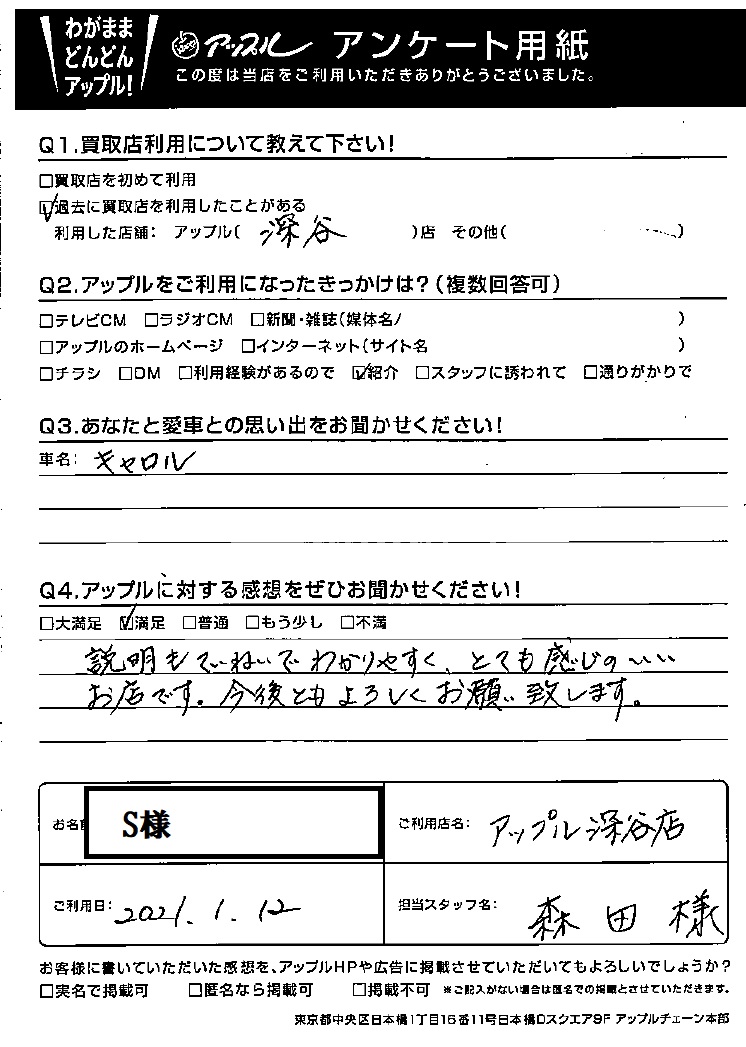 わがまま
どんどん
アップル!
アップル アンケート用紙
この度は当店をご利用いただきありがとうございました。
Q1.買取店利用について教えて下さい!
□買取店を初めて利用
☑過去に買取店を利用したことがある
利用した店舗: アップル( 深谷 )店 その他( )
Q2.アップルをご利用になったきっかけは?(複数回答可)
□テレビCM □ラジオCM □新聞・雑誌(媒体名/ )
□アップルのホームページ □インターネット(サイト名 )
□チラシ □DM □利用経験があるので ☑紹介 □スタッフに誘われて □通りがかりで
Q3.あなたと愛車との思い出をお聞かせください!
車名: キャロル
Q4.アップルに対する感想をぜひお聞かせください!
□大満足 ☑満足 □普通 □もう少し □不満
説明もていねいでわかりやすく、とても感じのいい
お店です。今後ともよろしくお願い致します。
お名前 S様
ご利用店名: アップル深谷店
ご利用日: 2021.1.12
担当スタッフ名: 森田様
お客様に書いていただいた感想を、アップルHPや広告に掲載させていただいてもよろしいでしょうか?
□実名で掲載可 □匿名なら掲載可 □掲載不可 ※ご記入がない場合は匿名での掲載とさせていただきます。
東京都中央区日本橋1丁目16番11号日本橋Dスクエア9F アップルチェーン本部